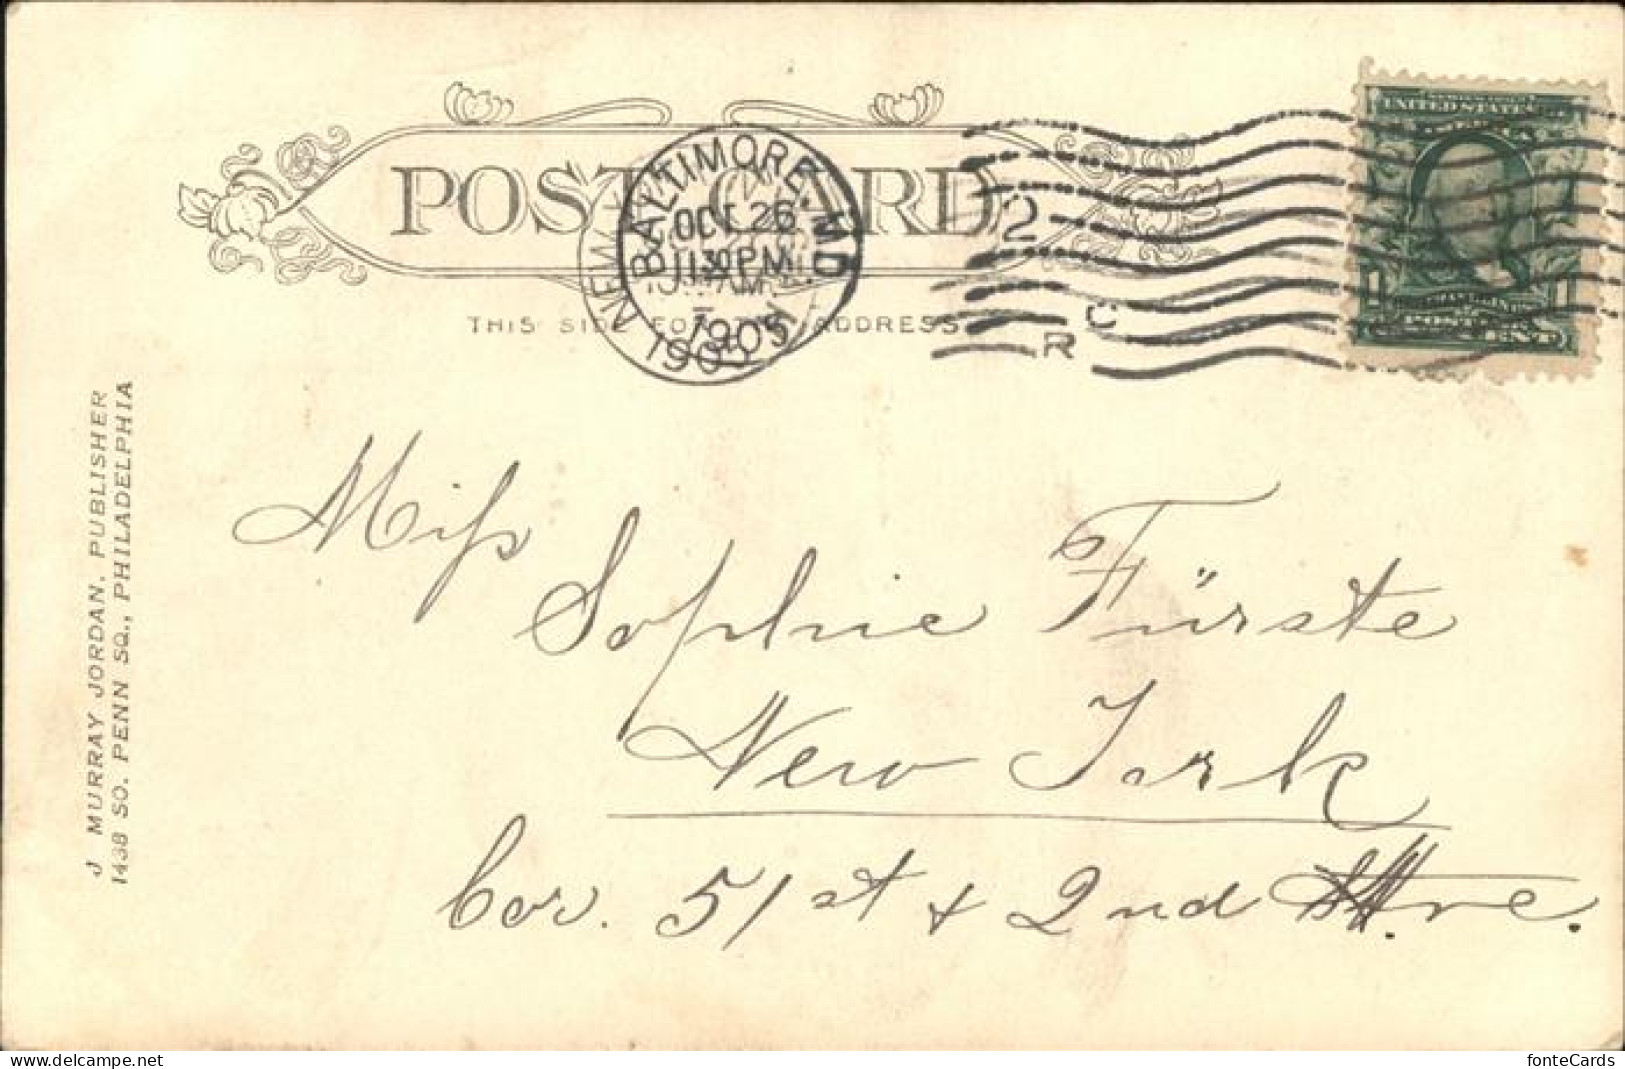 POST CARD
THIS SIDE FOR THE ADDRESS
BALTIMORE, MD.
OCT 26
1 30 PM
1905
NEW
1905
2
R C
UNITED STATES OF AMERICA
1 1
POSTAGE
ONE CENT
J MURRAY JORDAN, PUBLISHER
1438 SO. PENN SQ., PHILADELPHIA
Miss
Sophie Fürste
New York
Cor. 51st & 2nd Ave.
delcampe.net
fonteCards